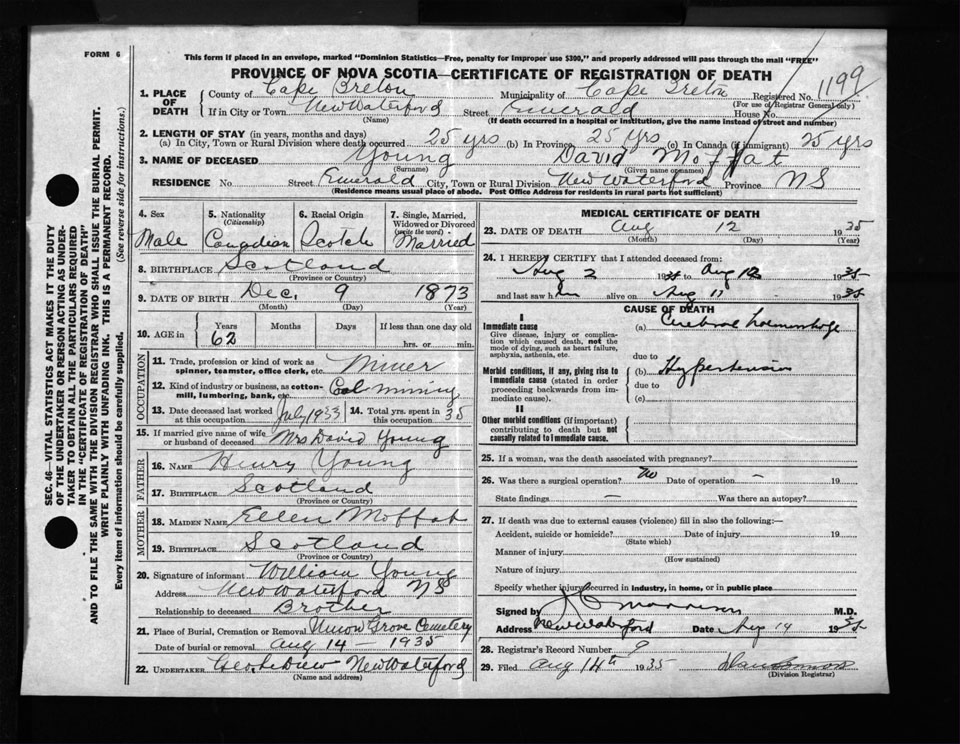 FORM 6
This form if placed in an envelope, marked "Dominion Statistics—Free, penalty for improper use $300," and properly addressed will pass through the mail "FREE"
PROVINCE OF NOVA SCOTIA—CERTIFICATE OF REGISTRATION OF DEATH
1199
1. PLACE OF DEATH County of Cape Breton Municipality of Cape Breton Registered No.
(For use of Registrar General only)
If in City or Town New Waterford Street Emerald House No.
(Name) (If death occurred in a hospital or institution, give the name instead of street and number)
2. LENGTH OF STAY (in years, months and days)
(a) In City, Town or Rural Division where death occurred 25 yrs (b) In Province 25 yrs (c) In Canada (if immigrant) 25 yrs
3. NAME OF DECEASED Young David Moffat
(Surname) (Given name or names)
RESIDENCE No Street Emerald City, Town or Rural Division New Waterford Province NS
(Residence means usual place of abode. Post Office Address for residents in rural parts not sufficient)
4. Sex 5. Nationality (Citizenship) 6. Racial Origin 7. Single, Married, Widowed or Divorced (write the word)
Male Canadian Scotch Married
8. BIRTHPLACE Scotland
(Province or Country)
9. DATE OF BIRTH Dec. 9 1873
(Month) (Day) (Year)
10. AGE in Years Months Days If less than one day old
62 hrs. or min.
OCCUPATION
11. Trade, profession or kind of work as spinner, teamster, office clerk, etc. Miner
12. Kind of industry or business, as cotton-mill, lumbering, bank, etc. Coal mining
13. Date deceased last worked at this occupation July 1933 14. Total yrs. spent in this occupation 35
15. If married give name of wife or husband of deceased Mrs David Young
FATHER
16. NAME Henry Young
17. BIRTHPLACE Scotland
(Province or Country)
MOTHER
18. MAIDEN NAME Ellen Moffat
19. BIRTHPLACE Scotland
(Province or Country)
20. Signature of informant William Young
Address New Waterford NS
Relationship to deceased Brother
21. Place of Burial, Cremation or Removal Union Grove Cemetery
Date of burial or removal Aug 14 - 1935
22. UNDERTAKER New Waterford
(Name and address)
MEDICAL CERTIFICATE OF DEATH
23. DATE OF DEATH Aug 12 1935
(Month) (Day) (Year)
24. I HEREBY CERTIFY that I attended deceased from:
Aug 2 1935 to Aug 12 1935
and last saw him alive on Aug 11 1935
CAUSE OF DEATH
I
Immediate cause (a) Cerebral haemorrhage
Give disease, injury or complication which caused death, not the mode of dying, such as heart failure, asphyxia, asthenia, etc.
due to
Morbid conditions, if any, giving rise to immediate cause (stated in order proceeding backwards from immediate cause).
(b) Hypertension
due to
(c)
II
Other morbid conditions (if important) contributing to death but not causally related to immediate cause.
25. If a woman, was the death associated with pregnancy?
26. Was there a surgical operation? no Date of operation – 19
State findings – Was there an autopsy?
27. If death was due to external causes (violence) fill in also the following:—
Accident, suicide or homicide? Date of injury 19
(State which)
Manner of injury
(How sustained)
Nature of injury
Specify whether injury occurred in industry, in home, or in public place
Signed by M.D.
Address New Waterford Date Aug 14 1935
28. Registrar's Record Number 9
29. Filed Aug 14th 1935
(Division Registrar)
SEC. 46—VITAL STATISTICS ACT MAKES IT THE DUTY
OF THE UNDERTAKER OR PERSON ACTING AS UNDER-
TAKER TO OBTAIN ALL THE PARTICULARS REQUIRED
IN THE "CERTIFICATE OF REGISTRATION OF DEATH"
AND TO FILE THE SAME WITH THE DIVISION REGISTRAR WHO SHALL ISSUE THE BURIAL PERMIT.
WRITE PLAINLY WITH UNFADING INK. THIS IS A PERMANENT RECORD.
Every item of information should be carefully supplied. (See reverse side for instructions.)